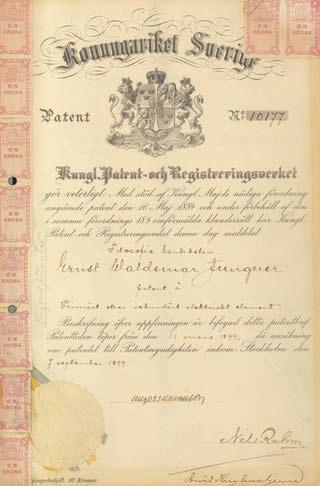 Konungariket Sverige
Patent No 10177
Kungl. Patent- och Registreringsverket
gör veterligt: Med stöd af Kungl. Maj:ts nådiga förordning
angående patent den 16 Maj 1884 och under förbehåll af den
i samma förordnings 18 § omförmälda klanderrätt har Kungl.
Patent och Registreringsverket denna dag meddelat
Filosofie kandidaten
Ernst Waldemar Jungner
patent å
Primärt eller sekundärt elektriskt element.
Beskrifning öfver uppfinningen är bifogad detta patentbref.
Patenttiden löper från den 11 mars 1899, då ansökning
om patentet till Patentmyndigheten inkom. Stockholm den
7 september 1899.
Nils Rahm
10 Kronor
EN
KRONA
EN
KRONA
EN
KRONA
EN
KRONA
EN
KRONA
EN
KRONA
EN
KRONA